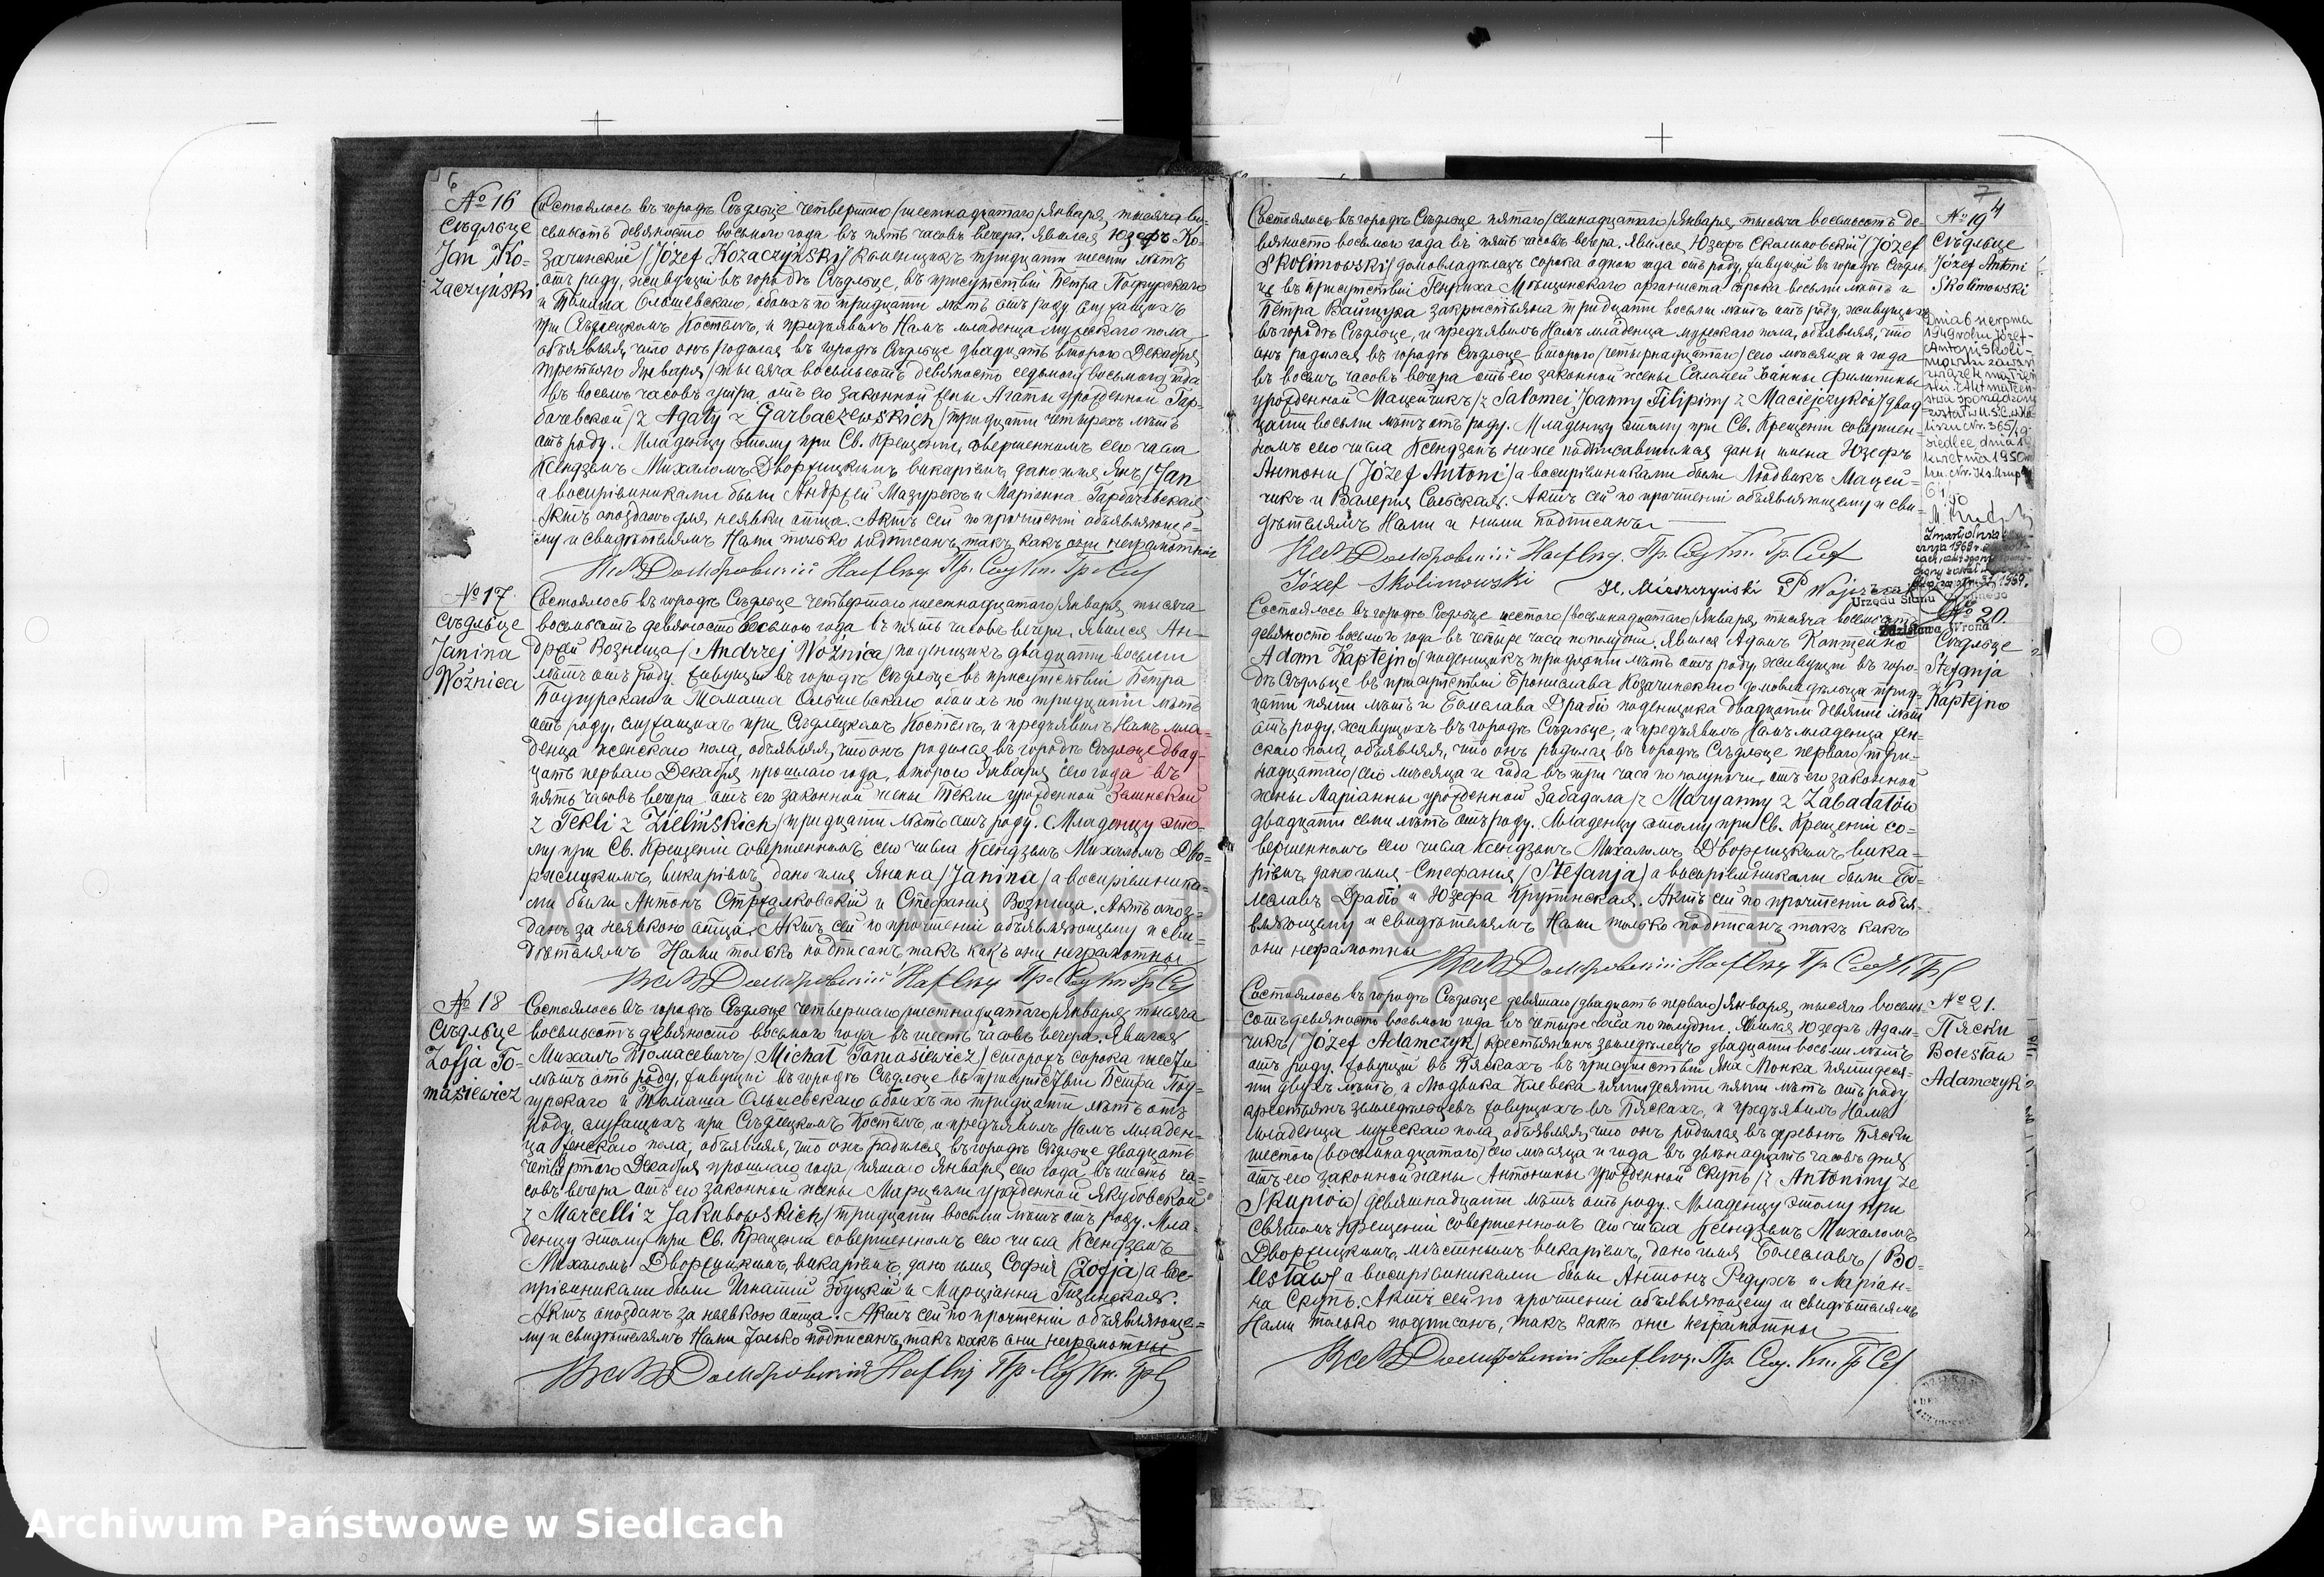 6
№ 16
Сѣдльце
Jan Ko-
zaczyński
Состоялось въ городѣ Сѣдльце четвертаго /шестнадцатаго/ Января, тысяча во-
семьсотъ девяносто восьмого года въ пять часовъ вечера. Явился Юзефъ Ко-
зачинскій /Józef Kozaczyński/ каменщикъ тридцати шести лѣтъ
отъ роду, живущій въ городѣ Сѣдльце, въ присутствіи Петра Подгурскаго
и Томаша Ольшевскаго, обоихъ по тридцати лѣтъ отъ роду служащихъ
при Сѣдлецкомъ Костелѣ, и предъявилъ Намъ младенца мужескаго пола
объявляя, что онъ родился въ городѣ Сѣдльце двадцать второго Декабря
/третьяго Января/ тысяча восемьсотъ девяносто седьмого /восьмого/ года
въ восемь часовъ утра, отъ его законной жены Агаты урожденной Гар-
бачевской /z Agaty z Garbaczewskich/ тридцати четырехъ лѣтъ
отъ роду. Младенцу этому при Св. Крещеніи, совершенномъ сего числа
Ксендзомъ Михаломъ Дворжицкимъ викаріемъ, дано имя Янъ /Jan
а воспріемниками были Андржей Мазурекъ и Маріанна Гарбачевская
Актъ опозданъ для неявки отца. Актъ сей по прочтеніи объявляюще-
му и свидѣтелямъ Нами только подписанъ, такъ какъ они неграмотны
№ 17
Сѣдльце
Janina
Woźnica
Состоялось въ городѣ Сѣдльце четвертаго /шестнадцатаго/ Января, тысяча
восемьсотъ девяносто восьмого года въ пять часовъ вечера. Явился Ан-
држей Возница /Andrzej Woźnica/ поденщикъ двадцати восьми
лѣтъ отъ роду, живущій въ городѣ Сѣдльце въ присутствіи Петра
Подгурскаго и Томаша Ольшевскаго обоихъ по тридцати лѣтъ
отъ роду, служащихъ при Сѣдлецкомъ Костелѣ, и предъявилъ Намъ мла-
денца женскаго пола, объявляя, что онъ родился въ городѣ Сѣдльце двад-
цать перваго Декабря прошлаго года, второго Января сего года въ
пять часовъ вечера отъ его законной жены Текли урожденной
z Tekli z Zielińskich/ тридцати лѣтъ отъ роду. Младенцу это-
му при Св. Крещеніи совершенномъ сего числа Ксендзомъ Михаломъ Дво-
ржицкимъ, викаріемъ, дано имя Янина /Janina/ а воспріемника-
ми были Антонъ Стржалковскій и Стефанія Возница. Актъ опоз-
данъ за неявкою отца. Актъ сей по прочтеніи объявляющему и сви-
дѣтелямъ Нами только подписанъ, такъ какъ они неграмотны
№ 18
Сѣдльце
Zofja To-
masiewicz
Состоялось въ городѣ Сѣдльце четвертаго /шестнадцатаго/ Января, тысяча
восемьсотъ девяносто восьмого года въ шесть часовъ вечера. Явился
Михалъ Томасевичъ /Michał Tomasiewicz/ сторожъ сорока шести
лѣтъ отъ роду, живущій въ городѣ Сѣдльце въ присутствіи Петра Под-
гурскаго и Томаша Ольшевскаго обоихъ по тридцати лѣтъ отъ
роду, служащихъ при Сѣдлецкомъ Костелѣ, и предъявилъ Намъ младен-
ца женскаго пола, объявляя, что онъ родился въ городѣ Сѣдльце двадцать
четвертаго Декабря прошлаго года /пятаго Января сего года/ въ шесть ча-
совъ вечера отъ его законной жены Марцелли урожденной Якубовской
z Marcelli z Jakubowskich/ тридцати восьми лѣтъ отъ роду. Мла-
денцу этому при Св. Крещеніи совершенномъ сего числа Ксендзомъ
Михаломъ Дворжицкимъ, викаріемъ, дано имя Софія (Zofja) а вос-
пріемниками были Игнатій Збуцкій и Марціанна
Актъ опозданъ за неявкою отца. Актъ сей по прочтеніи объявляюще-
му и свидѣтелямъ Нами только подписанъ, такъ какъ они неграмотны
№ 19
Сѣдльце
Józef Antoni
Skolimowski
Состоялось въ городѣ Сѣдльце пятаго /семнадцатаго/ Января, тысяча восемьсотъ де-
вяносто восьмого года въ пять часовъ вечера. Явился Юзефъ Сколимовскій /Józef
Skolimowski/ домовладѣлецъ сорока одного года отъ роду, живущій въ городѣ Сѣдль-
це въ присутствіи Генриха Мѣщинскаго органиста сорока восьми лѣтъ и
Петра Войщука закрыстьяна тридцати восьми лѣтъ отъ роду, живущихъ
въ городѣ Сѣдльце, и предъявилъ Намъ младенца мужескаго пола, объявляя, что
онъ родился въ городѣ Сѣдльце второго /четырнадцатаго/ сего мѣсяца и года
въ восемь часовъ вечера отъ его законной жены Саломеи Іоанны Филипины
урожденной Мацейчикъ /z Salomei Joanny Filipiny z Maciejczyków/ двад-
цати восьми лѣтъ отъ роду. Младенцу этому при Св. Крещеніи совершен-
номъ сего числа Ксендзомъ ниже подписавшимся даны имена Юзефъ
Антони (Józef Antoni) а воспріемниками были Людвикъ Мацей-
чикъ и Валерія Сельская. Актъ сей по прочтеніи объявляющему и сви-
дѣтелямъ Нами и ними подписанъ
Józef Skolimowski H. Mieszczyński P
№ 20.
Сѣдльце
Stefanja
Kaptejno
Состоялось въ городѣ Сѣдльце шестого /восемнадцатаго/ Января, тысяча восемьсотъ
девяносто восьмого года въ четыре часа по полудни. Явился Адамъ Каптейно
Adam Kaptejno/ поденщикъ тридцати лѣтъ отъ роду, живущій въ горо-
дѣ Сѣдльце въ присутствіи Бронислава Козачинскаго домовладѣльца трид-
цати пяти лѣтъ и Болеслава Драбіо поденщика двадцати девяти лѣтъ
отъ роду, живущихъ въ городѣ Сѣдльце, и предъявилъ Намъ младенца жен-
скаго пола, объявляя, что онъ родился въ городѣ Сѣдльце перваго /три-
надцатаго/ сего мѣсяца и года въ три часа по полуночи, отъ его законной
жены Маріанны урожденной Забадала /z Maryanny z Zabadałów
двадцати семи лѣтъ отъ роду. Младенцу этому при Св. Крещеніи со-
вершенномъ сего числа Ксендзомъ Михаломъ Дворжицкимъ вика-
ріемъ, дано имя Стефанія /Stefanja/ а воспріемниками были Бо-
леславъ Драбіо и Юзефа Крупинская. Актъ сей по прочтеніи объя-
вляющему и свидѣтелямъ Нами только подписанъ такъ какъ
они неграмотны
№ 21.
Пяски
Bolesław
Adamczyk
Состоялось въ городѣ Сѣдльце девятаго (двадцать перваго) Января, тысяча восемь-
сотъ девяносто восьмого года въ четыре часа по полудни. Явился Юзефъ Адам-
чикъ /Józef Adamczyk/ крестьянинъ земледѣлецъ двадцати восьми лѣтъ
отъ роду, живущій въ Пяскахъ въ присутствіи Яна Монка пятидеся-
ти двухъ лѣтъ, и Людвика Клевека пятидесяти пяти лѣтъ отъ роду
крестьянъ земледѣльцевъ живущихъ въ Пяскахъ, и предъявилъ Намъ
младенца мужескаго пола, объявляя, что онъ родился въ деревнѣ Пяски
шестого (восемнадцатаго) сего мѣсяца и года въ двѣнадцать часовъ дня
отъ его законной жены Антонины урожденной Скупъ /z Antoniny ze
Skupiów/ девятнадцати лѣтъ отъ роду. Младенцу этому при
Святомъ Крещеніи совершенномъ сего числа Ксендзомъ Михаломъ
Дворжицкимъ, мѣстнымъ викаріемъ, дано имя Болеславъ /Bo-
lesław/ а воспріемниками были Антонъ Редухъ и Маріан-
на Скупъ. Актъ сей по прочтеніи объявляющему и свидѣтелямъ
Нами только подписанъ, такъ какъ они неграмотны
ARCHIWUM PAŃSTWOWE
W SIEDLCACH
Archiwum Państwowe w Siedlcach